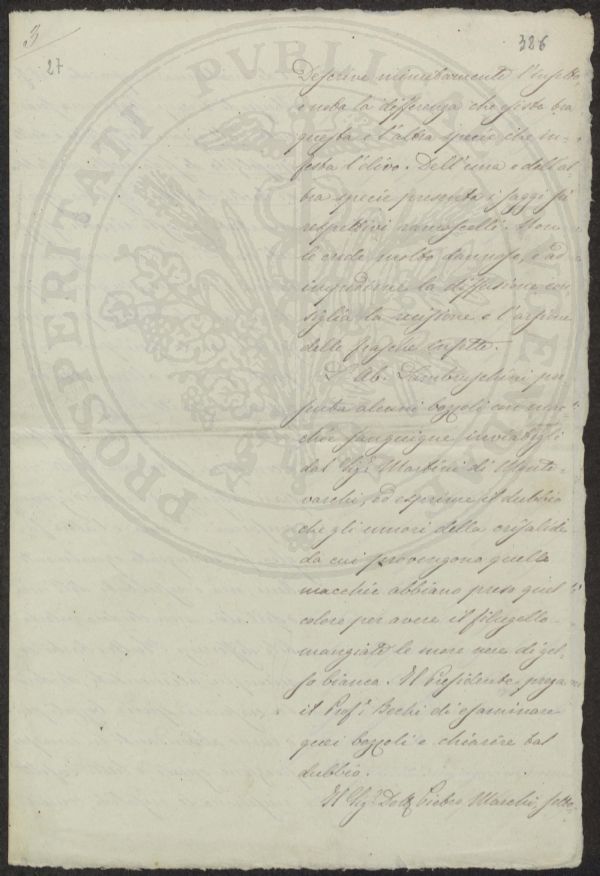 3
27
326
Descrive minutamente l'insetto,
e nota la differenza che esiste tra
questa e l'altra specie che in-
festa l'olivo. Dell'una e dell'al
tra specie presenta i saggi su
respettivi ramoscelli.
le crede molto dannose, e ad
impedirne la diffusione con
siglia la recisione e l'arsione
delle frasche infette.
L'Ab. Lambruschini pre
senta alcuni bozzoli con mac
chie sanguigne inviatigli
dal Sig.r Martini di Monte-
varchi, ed esprime il dubbio
che gli umori della crisalide
da cui provengono quelle
macchie abbiano preso quel
colore per avere il filugello
mangiate le more nere di gel-
so bianca. Il Presidente prega
il Prof.r Bechi di esaminare
quei bozzoli e chiarire tal
dubbio.
Il Sig.r Dott. Pietro Marchi, sotto
PROSPERITATI PUBLICAE AUGENDAE